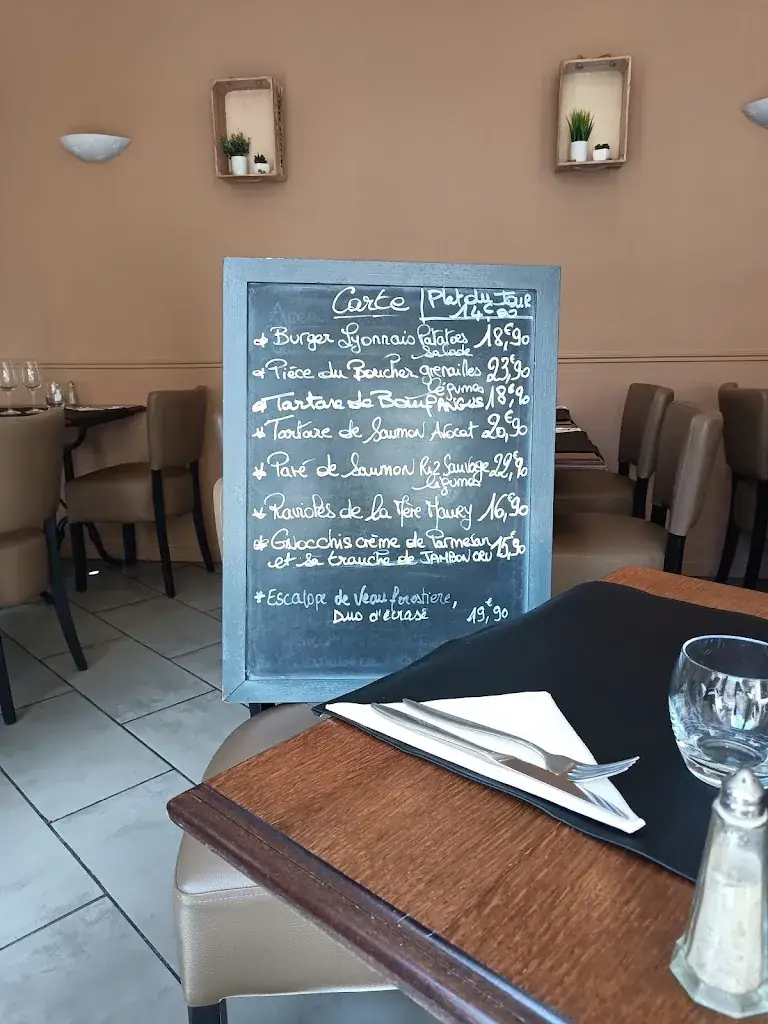 Carte
Plat du Jour
14,€
* Burger Lyonnais Patatoes 18,€90
Salade
* Pièce du Boucher grenailles 23,€90
légumes
* Tartare de Boeuf ANGUS 18,€90
* Tartare de Saumon Avocat 20,€90
* Pavé de Saumon Riz Sauvage 22,€90
légumes
* Ravioles de la Mère Maury 16,€90
* Gnocchis crème de Parmesan 15,€90
et sa tranche de JAMBON CRU
* Escalope de Veau forestière,
Duo d'écrasé 19,90